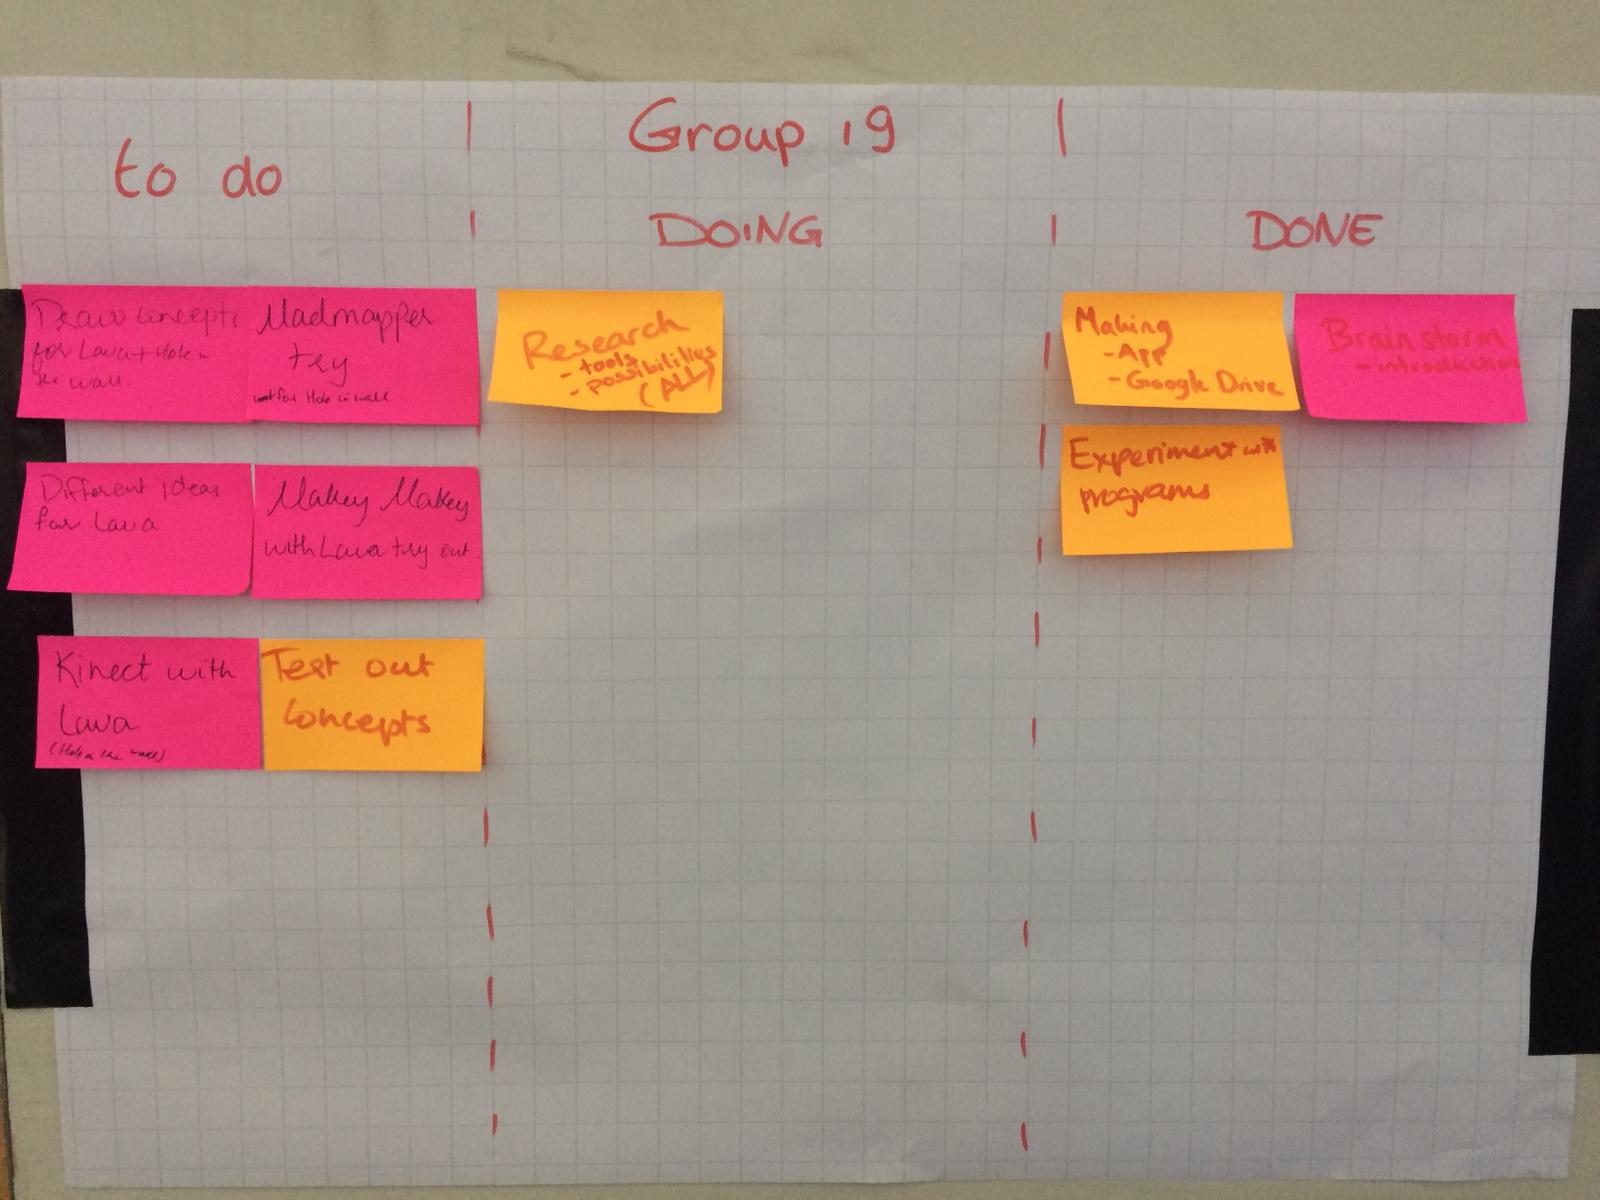 Group 19
to do
DOING
DONE
Draw concepts
for Lava + Hole in
the wall.
Madmapper
try
for Hole in wall
Different ideas
for Lava
Makey Makey
with Lava try out.
Kinect with
Lava
(Hole in the wall)
Test out
Concepts
Research
- tools
- possibilities
(ALL)
Making
- App
- Google Drive
Brainstorm
- introduction
Experiment with
programs